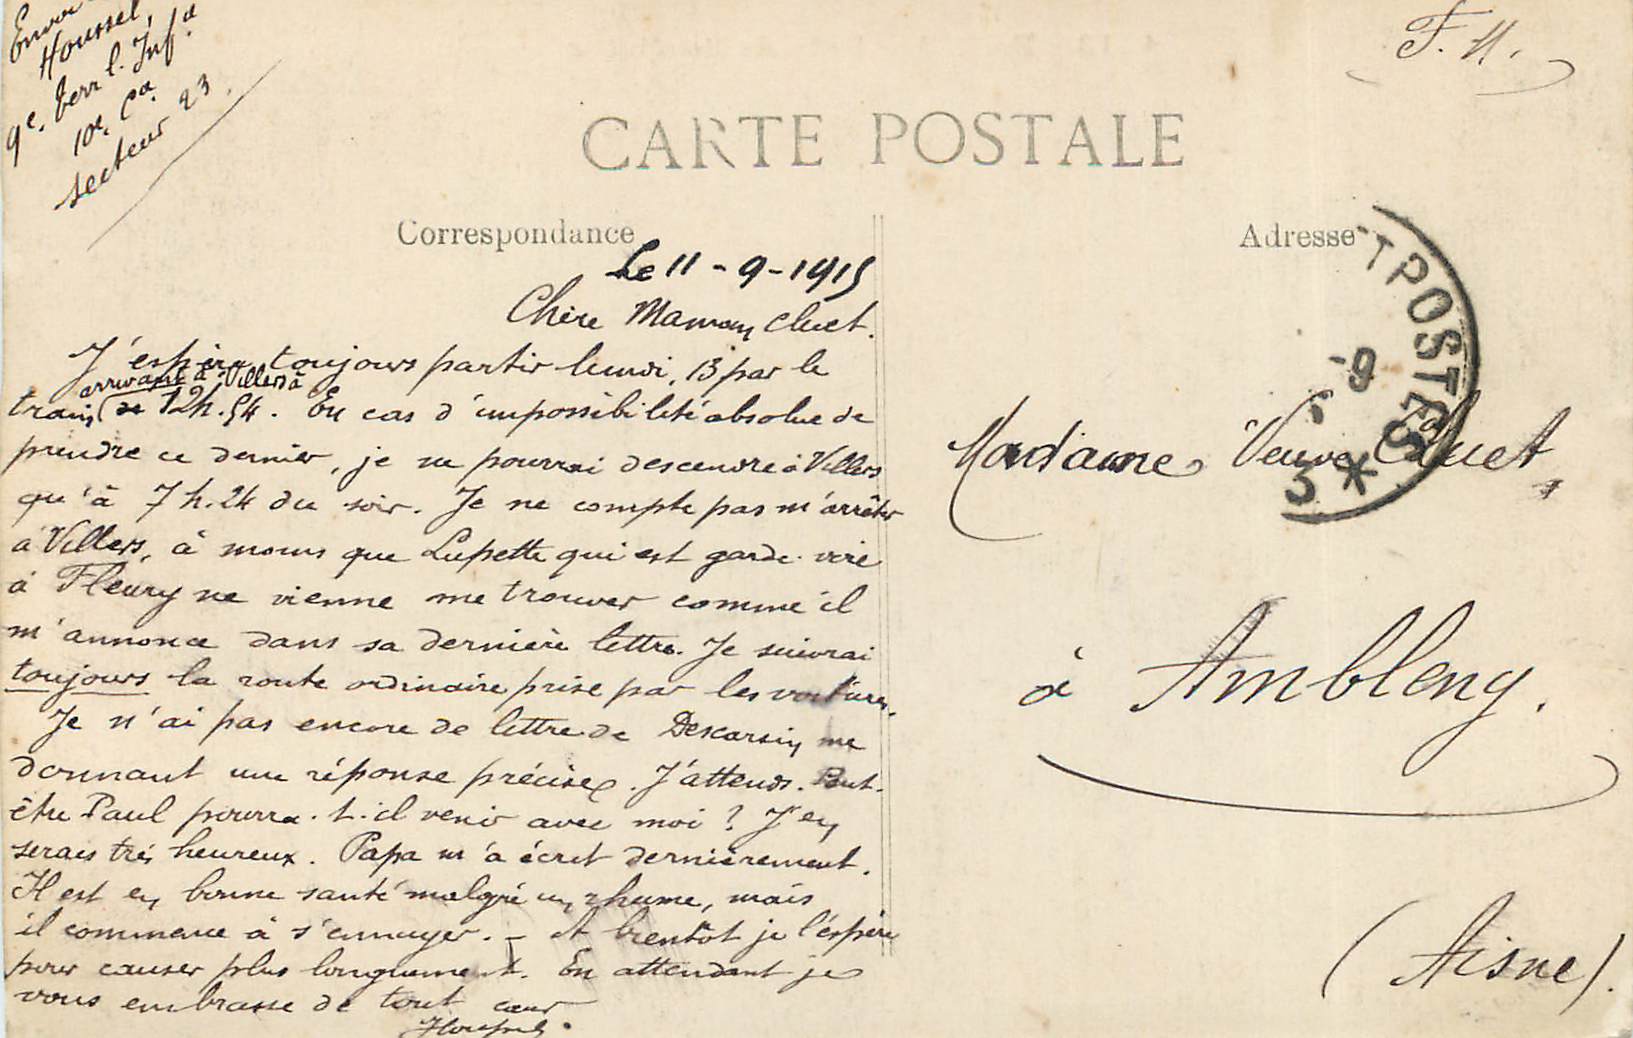 Envoi
Houssel,
9e. Terr l. Infa
10e. Ca.
secteur 23.
F. M.
CARTE POSTALE
Correspondance
Le 11-9-1915
Chère Maman Cluet.
J'espère toujours partir lundi, 13 par le
arrivant à Villers à
train de 12h.54. En cas d'impossibilité absolue de
prendre ce dernier, je ne pourrai descendre à Villers
qu'à 7 h. 24 du soir. Je ne compte pas m'arrêter
à Villers, à moins que Lupette qui est garde-voie
à Fleury ne vienne me trouver comme il
m'annonce dans sa dernière lettre. Je suivrai
toujours la route ordinaire prise par les voitures.
Je n'ai pas encore de lettre de Descarsin me
donnant une réponse précise. J'attends. Peut-
être Paul pourra-t-il venir avec moi ? J'en
serais très heureux. Papa m'a écrit dernièrement.
Il est en bonne santé malgré un rhume, mais
il commence à s'ennuyer. - A bientôt je l'espère
pour causer plus longuement. En attendant je
vous embrasse de tout cœur
Adresse
POSTES
9-
Madame Veuve Cluet,
à Ambleny.
(Aisne).